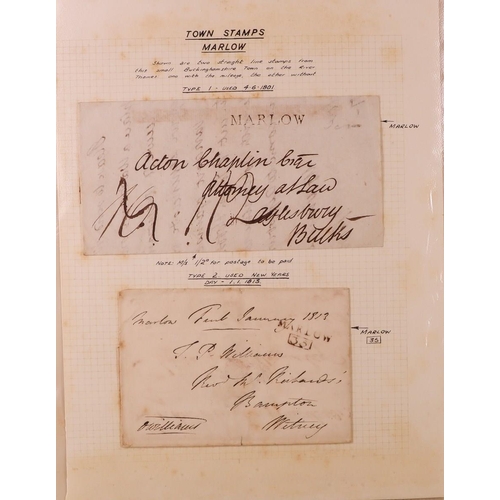 TOWN STAMPS
MARLOW
Shown are two straight line stamps from
this small Buckinghamshire Town on the River
Thames one with the mileage, the other without
TYPE 1 - USED 4-6-1801
MARLOW
MARLOW
Acton Chaplin Esqr
Attorney at Law
Aylesbury
Bucks
NOTE: M/s 1/2d for postage to be paid.
TYPE 2 USED NEW YEARS
DAY - 1.1.1813.
Marlow First January 1813
MARLOW
33
MARLOW
33
T. P. Williams
Revd Mr. Richards's
Bampton
Witney
Owilliams